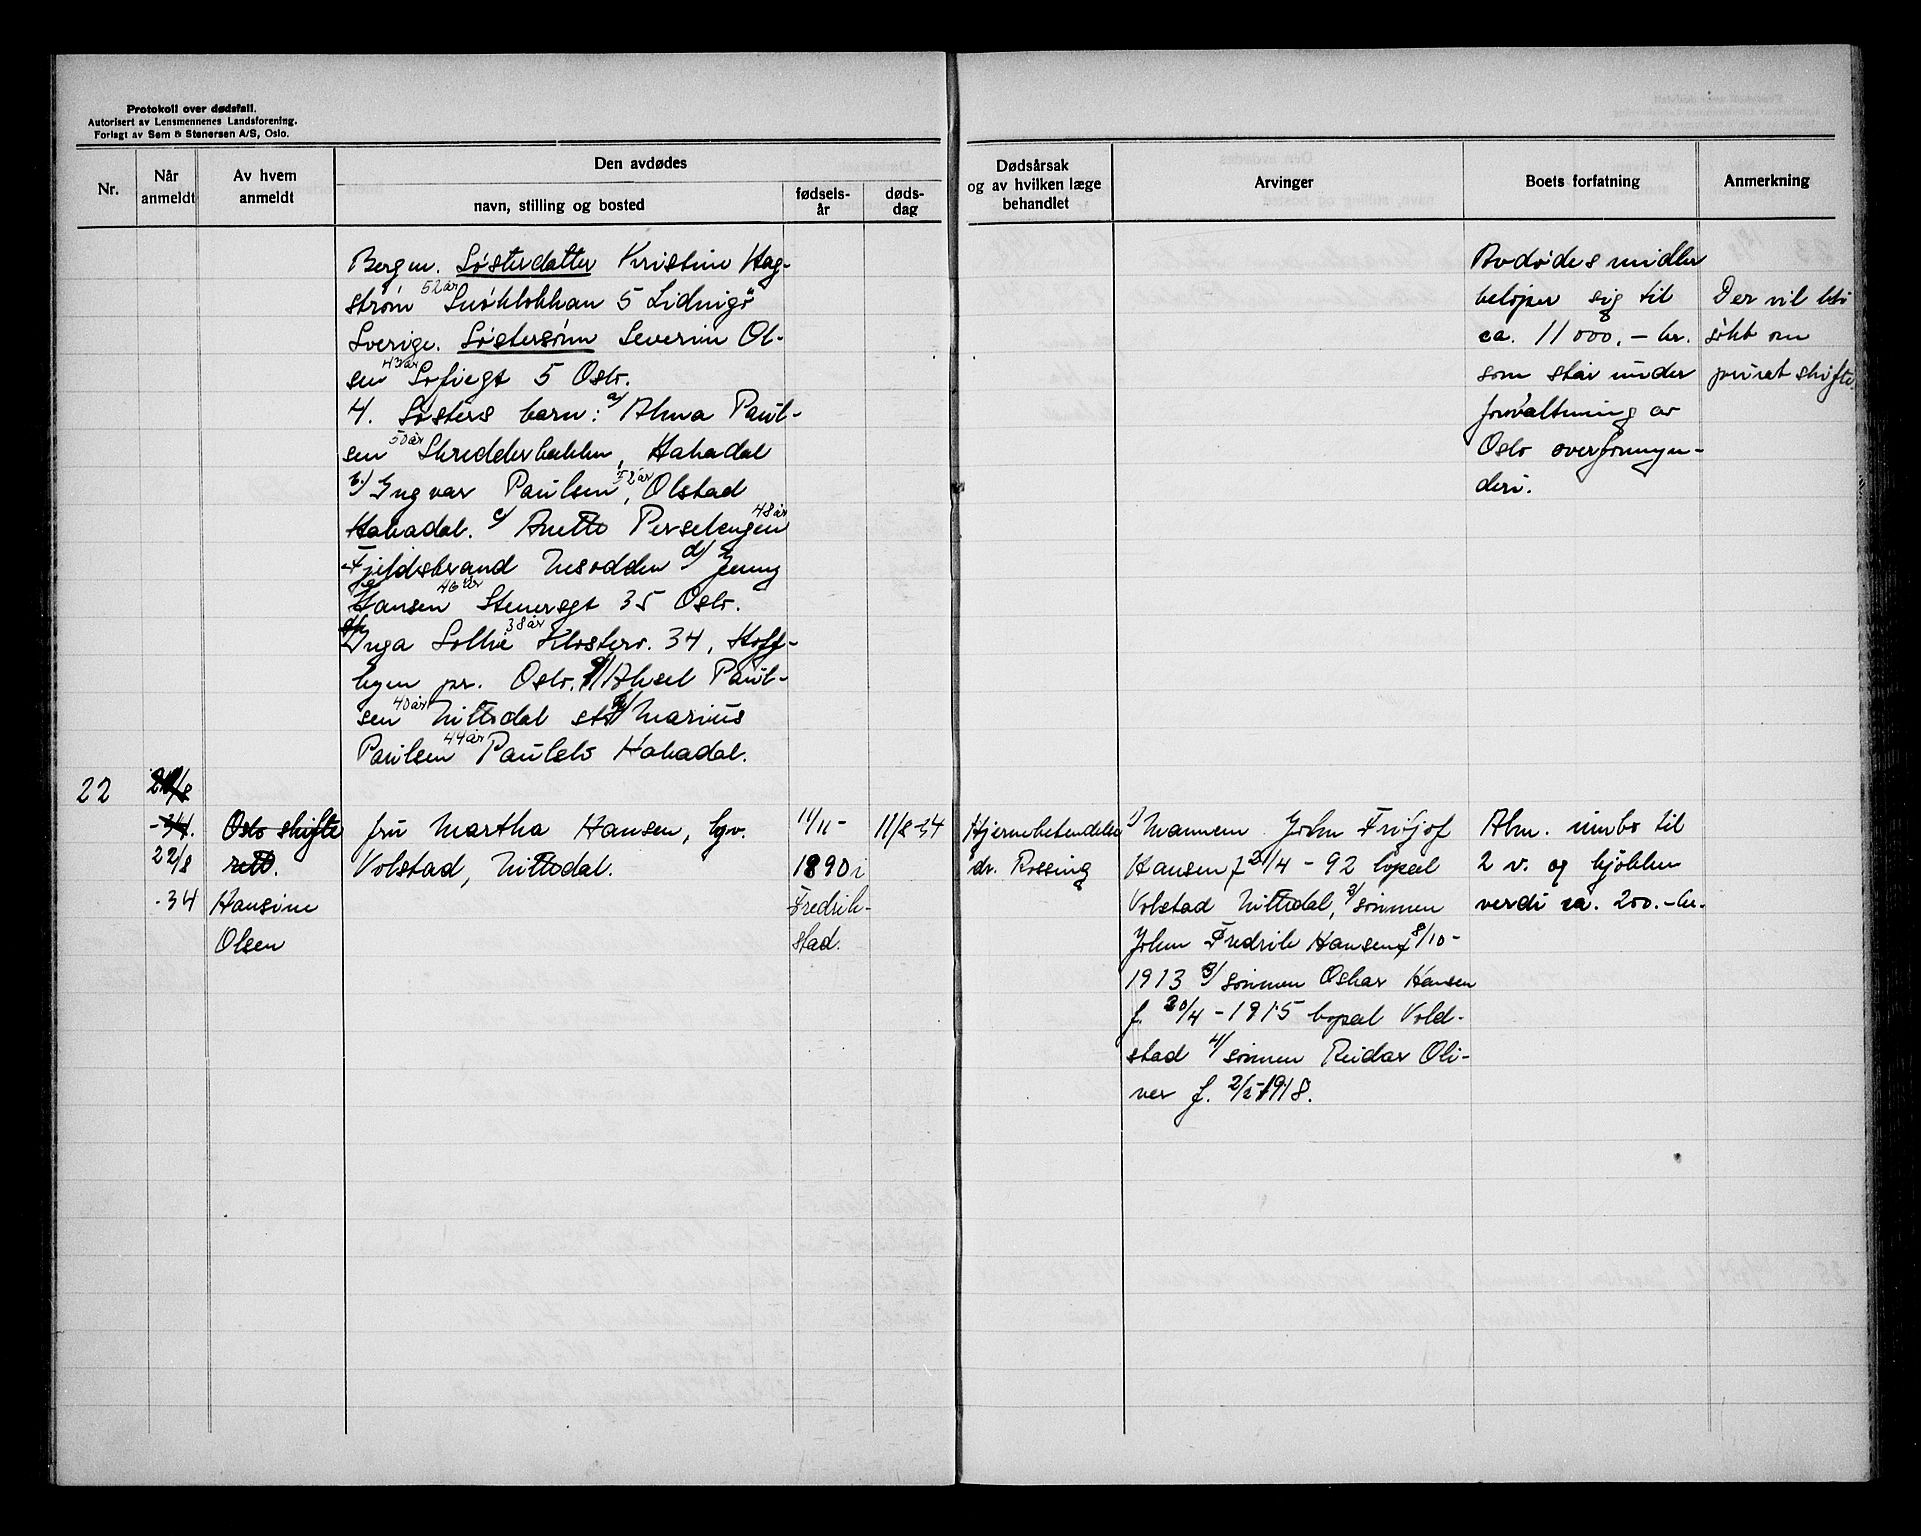 Protokoll over dødsfall.
Autorisert av Lensmennenes Landsforening.
Forlagt av Sem & Stenersen A/S, Oslo.
Nr.
Når anmeldt
Av hvem anmeldt
Den avdødes
navn, stilling og bosted
fødsels-
år
døds-
dag
Dødsårsak
og av hvilken læge
behandlet
Arvinger
Boets forfatning
Anmerkning
Bergen. Søsterdatter Kristine Hag-
strøm 52 år 5 Lidingö
Sverige. Søstersønn Severin Ol-
sen 43 år Sofiegt 5 Oslo.
4. Søsters barn: a/ Alma Paul-
sen 50 år Skredderbakken, Hakadal
b/ Ingvar Paulsen 52 år, Olstad
Hakadal. c/ Anette Persetengen 48 år
Fjeldstrand Nesodden d/ Jenny
Hansen 46 år Stenersgt 35 Oslo.
Inga Sollie 38 år Klosterv. 34, Hoff-
byen pr. Oslo. Aksel Paul-
sen 40 år Nittedal st. g/ Marius
Paulsen 44 år Paulsbo Hakadal.
Avdødes midler
beløper sig til
ca. 11000.- kr.
som står under
forvaltning av
Oslo overformyn-
deri.
Der vil bli
søkt om
privat skifte.
22
-34.
22/8
-34
Oslo skifte
rett.
Hansine
Olsen
fru Martha Hansen, bgv.
Volstad, Nittedal.
11/11-
1890 i
Fredrik-
stad.
11/8-34
Hjernebetendelse
dr. Rossing
1/ Mannen John Fritjof
Hansen f. 2/4-92 bopæl
Volstad Nittedal, 2/ sønnen
John Fredrik Hansen f 8/10-
1913 3/ sønnen Oskar Hansen
f. 30/4-1915 bopæl Vold-
stad 4/ sønnen Reidar Oli-
ver f. 2/5-1918.
Alm. innbo til
2 v. og kjøkken
verdi ca. 200.- kr.